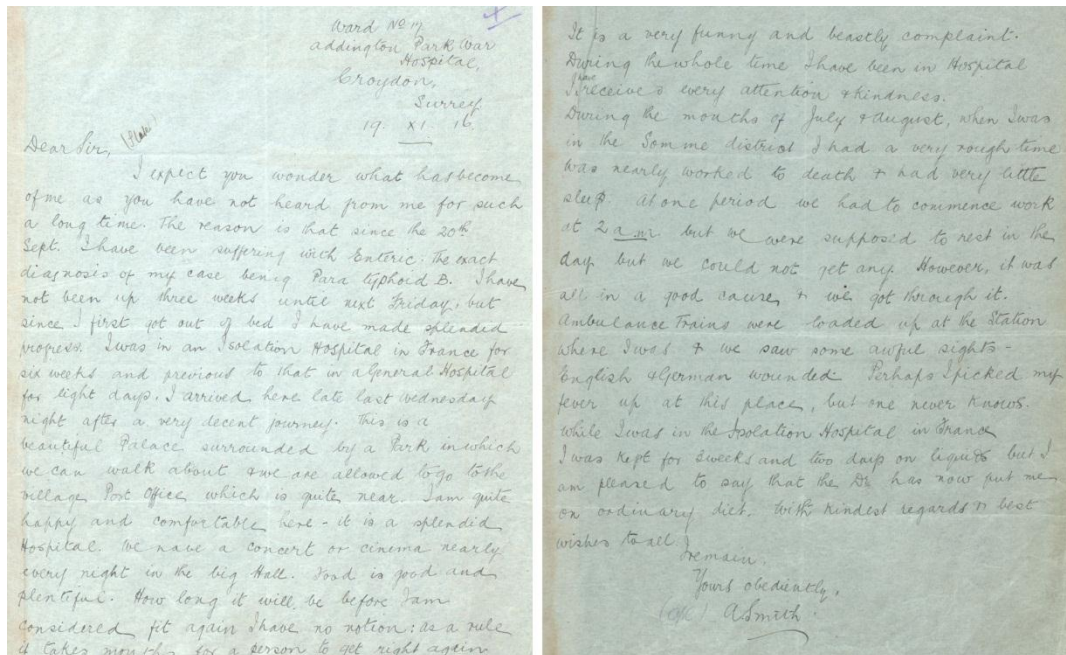 Ward No 17
Addington Park War
Hospital,
Croydon,
Surrey
19. XI. 16
Dear Sir,
I expect you wonder what has become
of me as you have not heard from me for such
a long time. The reason is that since the 20th
Sept. I have been suffering with Enteric: the exact
diagnosis of my case benig Para typhoid B. I have
not been up three weeks until next Friday, but
since I first got out of bed I have made splendid
progress. I was in an Isolation Hospital in France for
six weeks and previous to that in a General Hospital
for eight days. I arrived here late last Wednesday
night after a very decent journey. This is a
beautiful Palace surrounded by a Park in which
we can walk about & we are allowed to go to the
village Post Office which is quite near. I am quite
happy and comfortable here - it is a splendid
Hospital. We have a concert or cinema nearly
every night in the big Hall. Food is good and
plentiful. How long it will be before I am
considered fit again I have no notion: as a rule
it takes months for a person to get right again
It is a very funny and beastly complaint.
During the whole time I have been in Hospital
I have received every attention & kindness.
During the months of July & August, when I was
in the Somme district I had a very rough time
was nearly worked to death & had very little
sleep. At one period we had to commence work
at 2 a.m. but we were supposed to rest in the
day but we could not get any. However, it was
all in a good cause, & we got through it.
Ambulance Trains were loaded up at the Station
where I was & we saw some awful sights -
English & German wounded. Perhaps I picked my
fever up at this place, but one never knows.
While I was in the Isolation Hospital in France
I was kept for 3 weeks and two days on liquids but I
am pleased to say that the Dr. has now put me
on ordinary diet. With kindest regards & best
wishes to all
I remain.
Yours obediently,
A Smith.